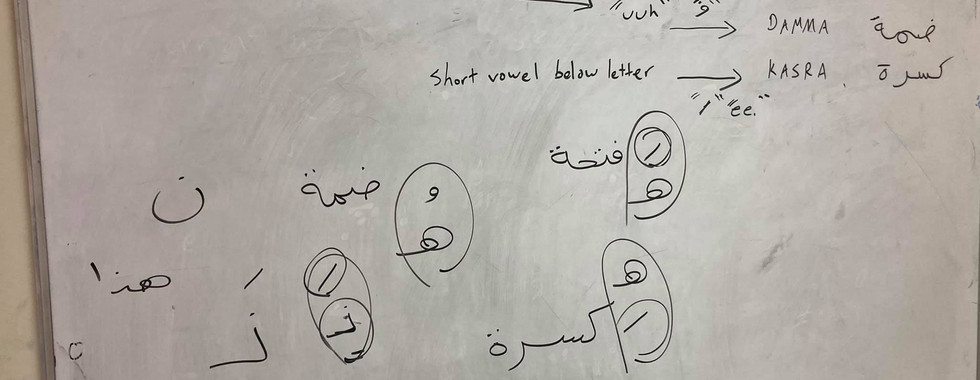 "uuh" "و"
→ DAMMA ضمة
short vowel below letter → KASRA كسرة
"I" "ee."
فتحة هَ
ن ضمة هُ
هذا ذَ
كسرة هِ